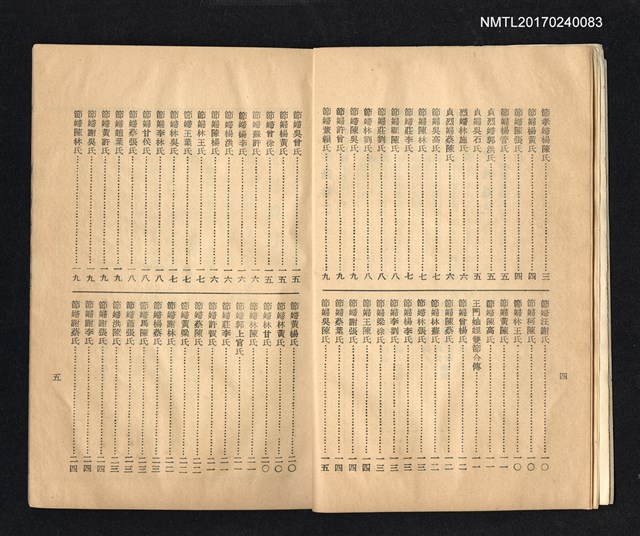 NMTL20170240083
節孝婦楊陳氏……三
節婦楊黃氏……四
節婦陳張氏……四
節婦楊曾氏……五
貞烈婦郭洪氏……五
貞婦吳石氏……五
烈婦林施氏……六
貞烈婦蔡陳氏……六
節婦吳高氏……六
節婦陳林氏……七
節婦莊李氏……七
節婦莊劉氏……八
節婦林劉氏……八
節婦陳吳氏……九
節婦許曾氏……九
節婦董賴氏……九
節婦汪謝氏……一〇
節婦柯蔡氏……一〇
節婦林王氏……一〇
節婦黃陳氏……一一
節婦陳高氏……一一
王門妯娌雙節合傳……一一
節婦曾楊氏……一二
節婦陳蔡氏……一二
節婦林蘇氏……一二
節婦林張氏……一二
節婦楊李氏……一三
節婦李劉氏……一三
節婦梁徐氏……一三
節婦王陳氏……一四
節婦陳張氏……一四
節婦蔡葉氏……一四
節婦吳陳氏……一五
四
節婦吳曾氏……一五
節婦楊黃氏……一五
節婦曾徐氏……一五
節婦蘇許氏……一六
節婦楊李氏……一六
節婦楊洪氏……一六
節婦陳楊氏……一六
節婦林王氏……一七
節婦王葉氏……一七
節婦林吳氏……一七
節婦李林氏……一八
節婦甘侯氏……一八
節婦蔡張氏……一八
節婦趙葉氏……一九
節婦黃許氏……一九
節婦謝吳氏……一九
節婦陳林氏……一九
節婦黃楊氏……二〇
節婦林黃氏……二〇
節婦林甘氏……二〇
節婦林陳氏……二一
節婦郭上官氏……二一
節婦莊李氏……二一
節婦許程氏……二二
節婦蔡陳氏……二二
節婦黃梁氏……二二
節婦謝林氏……二二
節婦楊蔡氏……二三
節婦馬陳氏……二三
節婦蕭張氏……二三
節婦洪陳氏……二三
節婦謝張氏……二四
節婦謝李氏……二四
節婦謝蔡氏……二四
五